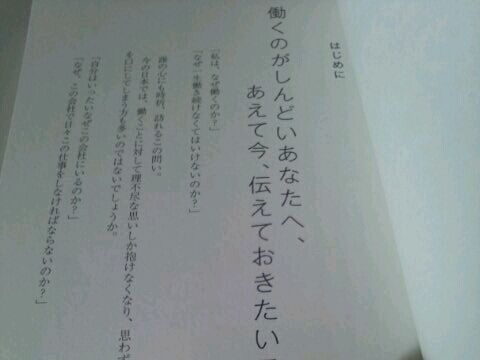 はじめに
働くのがしんどいあなたへ、
あえて今、伝えておきたい
「私は、なぜ働くのか？」
「なぜ一生働き続けなくてはいけないのか？」
誰の心にも時折、訪れるこの問い。
今の日本では、働くことに対して理不尽な思いしか抱けなくなり、思わず
を口にしてしまう方も多いのではないでしょうか。
「自分はいったいなぜこの会社にいるのか？」
「なぜ、この会社で日々この仕事をしなければならないのか？」